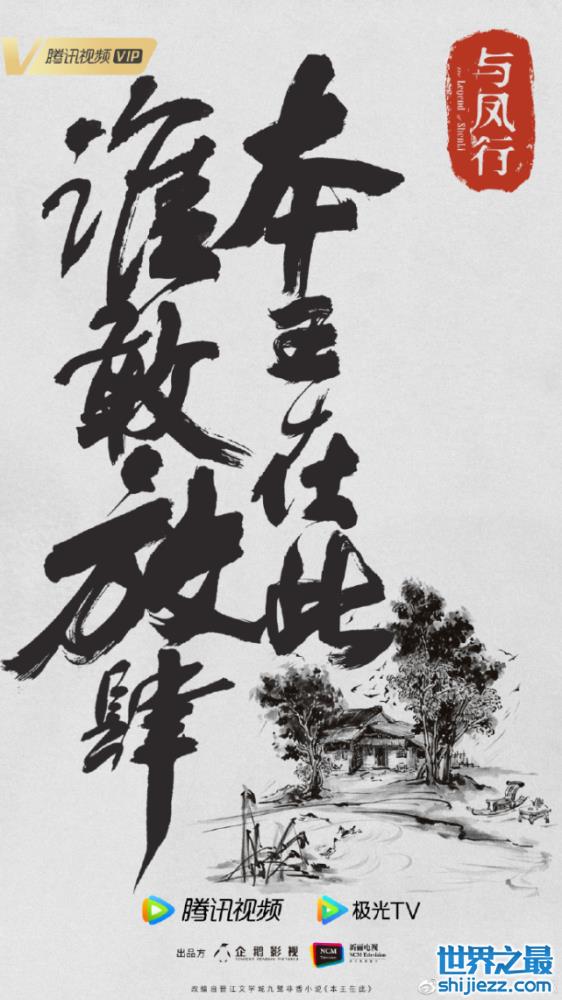 腾讯视频VIP
与凤行
The Legend of ShenLi
本王在此
谁敢放肆
腾讯视频
极光TV
出品方
企鹅影视
TENCENT PENGUIN PICTURES
NCM
新丽电视
NCM Television
改编自晋江文学城九鹭非香小说《本王在此》
世界之最
shijiezz.com